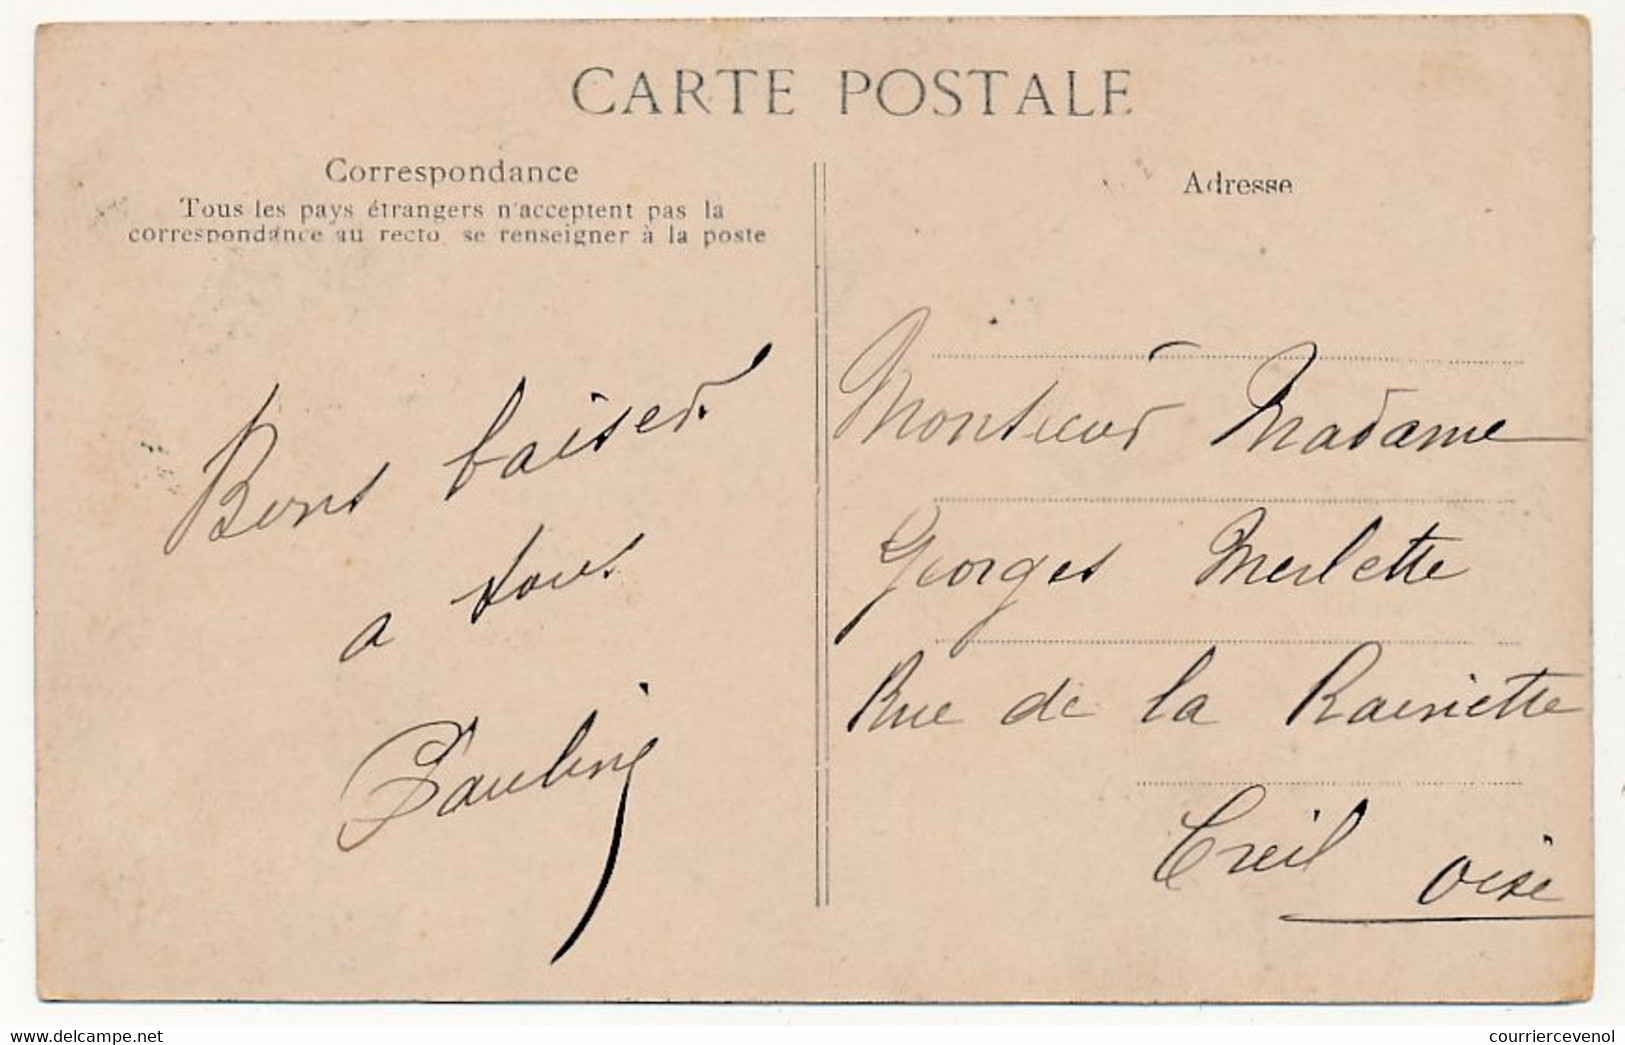 CARTE POSTALE
Correspondance
Tous les pays étrangers n'acceptent pas la
correspondance au recto, se renseigner à la poste
Adresse
Bons baisers
a tous
Pauline
Monsieur Madame
Georges Merlette
Rue de la Rainette
Creil
Oise
www.delcampe.net
courriercevenol